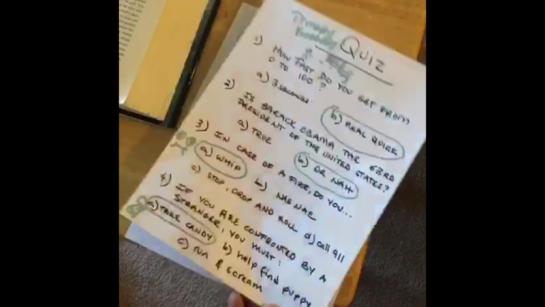 QUIZ
1) HOW FAST DO YOU GET FROM
0 TO 100?
a) 3 seconds
b) REAL QUICK
2) IS BARACK OBAMA THE 63RD
PRESIDENT OF THE UNITED STATES?
a) TRUE
b) OR NAH
3) IN CASE OF A FIRE, DO YOU...
a) WHIP
b) NAE NAE
c) STOP, DROP AND ROLL
d) call 911
4) IF YOU ARE CONFRONTED BY A
STRANGER, YOU MUST:
a) TAKE CANDY
b) help find puppy
c) run & scream